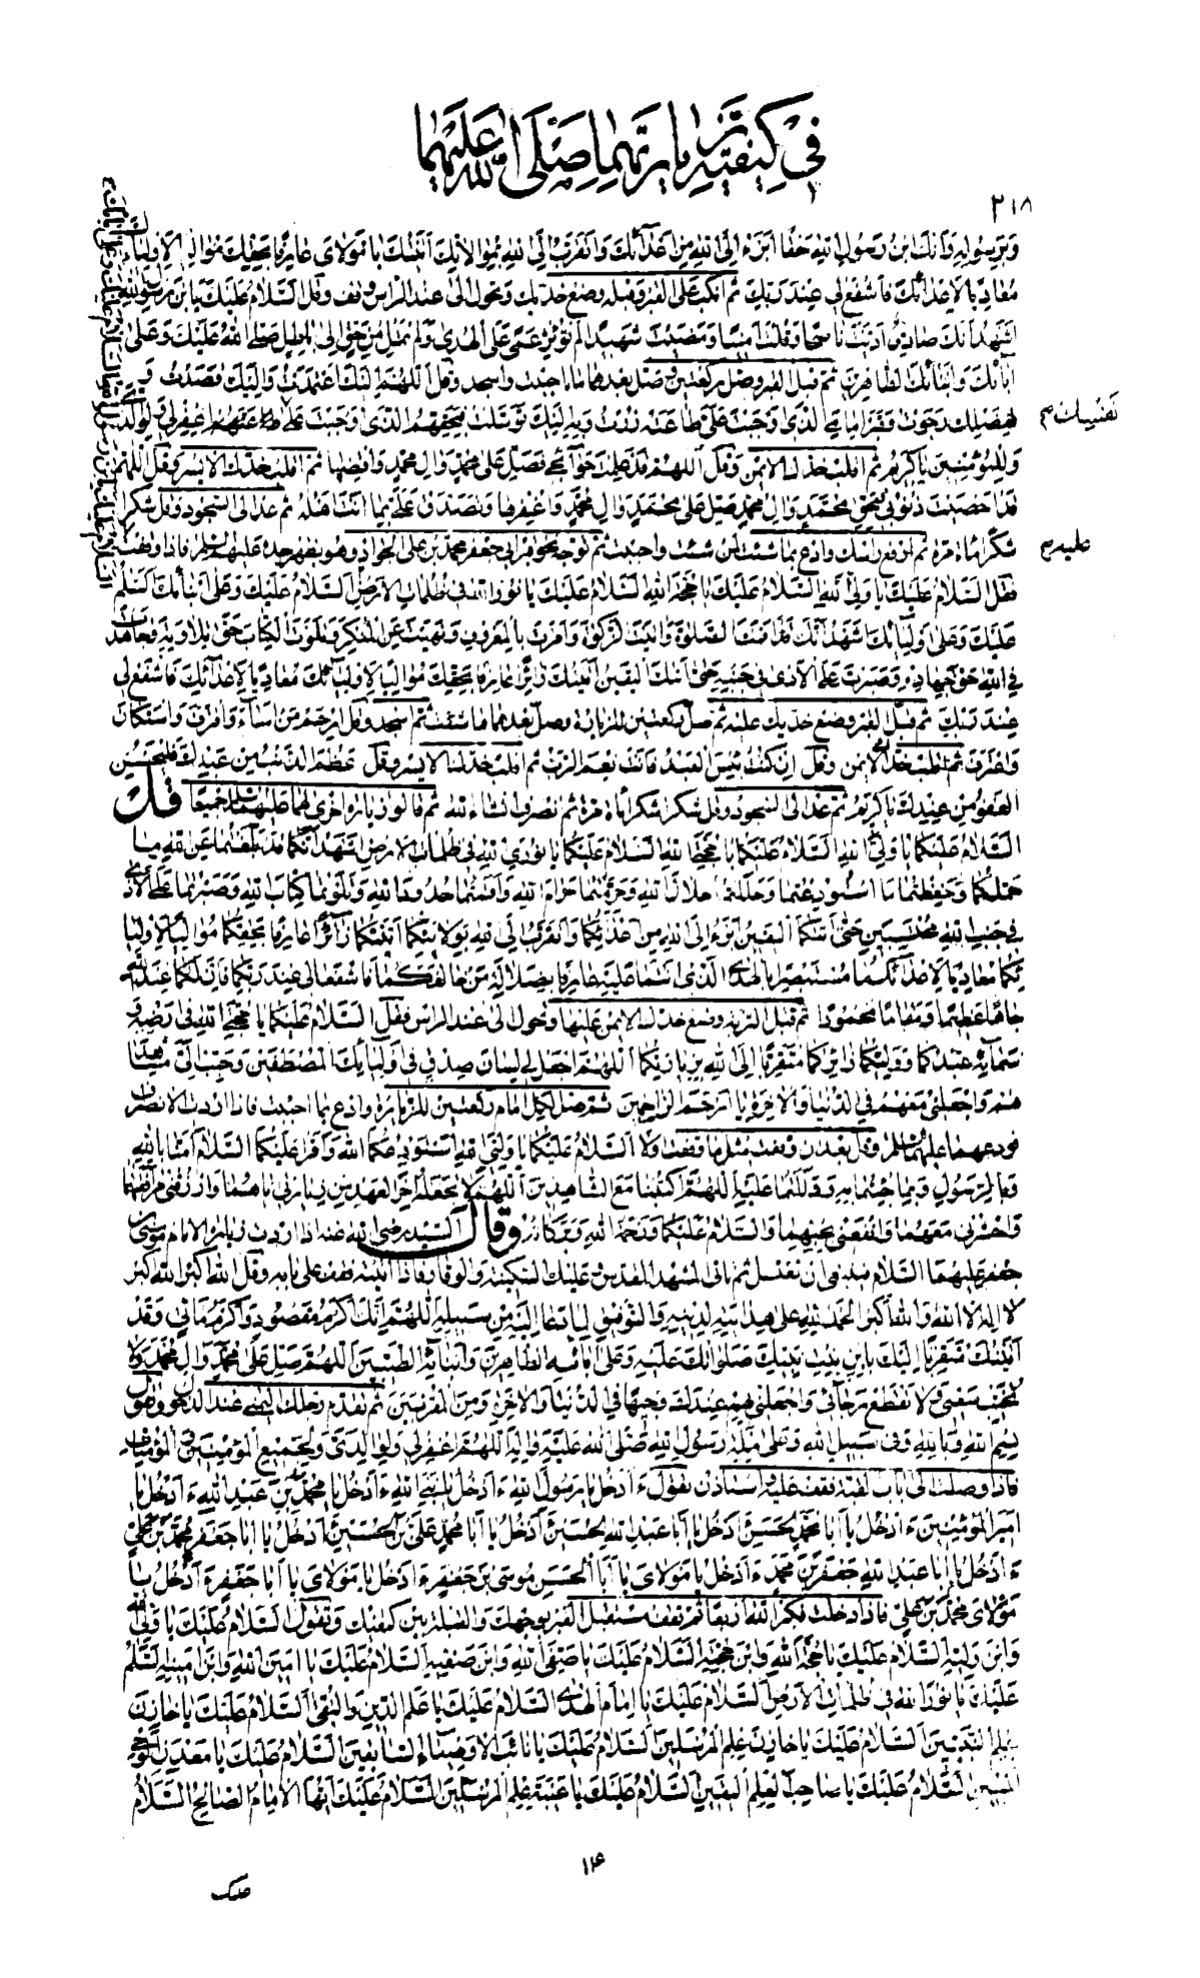 في كيفية زيارتهما صلى الله عليهما
٢١٨
وبرسوله وأنك ابن رسول الله حقا أبرء إلى الله من أعدائك وأتقرب إلى الله بموالاتك أتيتك يا مولاي عارفا بحقك مواليا لأوليائك
معاديا لأعدائك فاشفع لي عند ربك ثم انكب على القبر وقبله وضع خديك وتحول إلى عند الراس وقف وقل السلام عليك يابن رسول الله
أشهد أنك صادق أديت ناصحا وقلت أمينا ومضيت شهيدا لم تؤثر عمى على الهدى ولم تمل من حق إلى باطل صلى الله عليك وعلى
آبائك وأبنائك الطاهرين ثم قبل القبر وصل ركعتين وصل بعدهما ما أحببت واسجد وقل اللهم إليك اعتمدت وإليك قصدت و
لفضلك رجوت وقبر إمامي الذي أوجبت علي طاعته زرت وبه إليك توسلت فبحقهم الذي أوجبت على نفسك اغفر لي ولوالدي
وللمؤمنين يا كريم ثم اقلب خدك الأيمن وقل اللهم قد علمت حوائجي فصل على محمد وآل محمد واقضها ثم اقلب خدك الأيسر وقل اللهم
قد أحصيت ذنوبي فبحق محمد وآل محمد صل على محمد وآل محمد واغفرها وتصدق علي بما أنت أهله ثم عد إلى السجود وقل شكرا
شكرا مأة مرة ثم ارفع رأسك وادع بما شئت لمن شئت وأحببت ثم توجه نحو قبر أبي جعفر محمد بن علي الجواد وهو بظهر جده عليهما السلم فإذا وقفت
فقل السلام عليك يا ولي الله السلام عليك يا حجة الله السلام عليك يا نور الله في ظلمات الأرض السلام عليك وعلى أبنائك السلم
عليك وعلى أوليائك أشهد أنك قد أقمت الصلوة وآتيت الزكوة وأمرت بالمعروف ونهيت عن المنكر وتلوت الكتاب حق تلاوته وجاهدت
في الله حق جهاده وصبرت على الأذى في جنبه حتى أتاك اليقين أتيتك زائرا عارفا بحقك مواليا لأوليائك معاديا لأعدائك فاشفع لي
عند ربك ثم قبل القبر وضع خديك عليه ثم صل ركعتين للزيارة وصل بعدهما ما شئت ثم اسجد وقل ارحم من أساء واقترف واستكان
واعترف ثم اقلب خدك الأيمن وقل إن كنت بئس العبد فأنت نعم الرب ثم اقلب خدك الأيسر وقل عظم الذنب من عبدك فليحسن
العفو من عندك يا كريم ثم عد إلى السجود وقل شكرا شكرا مأة مرة ثم تنصرف إنشاء الله ثم قالوا زيارة أخرى لهما عليهما السلام جميعا قل
السلام عليكما يا وليي الله السلام عليكما يا حجتي الله السلام عليكما يا نوري الله في ظلمات الأرض أشهد أنكما قد بلغتما عن الله ما
حملكما وحفظتما ما استودعتما وحللتما حلال الله وحرمتما حرام الله وأقمتما حدود الله وتلوتما كتاب الله وصبرتما على الأذى
في جنب الله محتسبين حتى أتيكما اليقين أبرء إلى الله من أعدائكما وأتقرب إلى الله بولايتكما أتيتكما زائرا عارفا بحقكما مواليا لأوليا
ئكما معاديا لأعدائكما مستبصرا بالهدى الذي أنتما عليه عارفا بضلالة من خالفكما فاشفعا لي عند ربكما فإن لكما عند الله
جاها عظيما ومقاما محمودا ثم قبل التربة وضع خدك الأيمن عليها وتحول إلى عند الراس فقل السلام عليكما يا حجتي الله في أرضه و
سمائه عبدكما ووليكما زائركما متقربا إلى الله بزيارتكما اللهم اجعل لي لسان صدق في أوليائك المصطفين وحبب إلي مشاهد
هم واجعلني معهم في الدنيا والآخرة يا أرحم الراحمين ثم صل لكل إمام ركعتين للزيارة وادع بما أحببت فإذا أردت الانصراف
فودعهما عليهما السلم وقل بعد أن وقفت مثل ما وقفت أولا السلام عليكما يا وليي الله أستودعكما الله وأقرء عليكما السلام آمنا بالله
وبالرسول وبما جئتما به ودللتما عليه اللهم اكتبنا مع الشاهدين اللهم لا تجعله آخر العهد من زيارتي إياهما وارزقني مرافقتهما
واحشرني معهما وانفعني بحبهما والسلام عليكما ورحمة الله وبركاته وقال السيد رضي الله عنه إذا أردت زيارة الإمام موسى بن
جعفر عليهما السلام فينبغي أن تغتسل ثم تأتي المشهد المقدس عليك السكينة والوقار فإذا أتيته فقف على بابه وقل الله أكبر الله أكبر
لا إله إلا الله والله أكبر الحمد لله على هدايته لدينه والتوفيق لما دعا إليه من سبيله اللهم إنك أكرم مقصود وأكرم مأتي وقد
أتيتك متقربا إليك بابن بنت نبيك صلواتك عليه وعلى آبائه الطاهرين وأبنائه الطيبين اللهم صل على محمد وآل محمد ولا
تخيب سعيي ولا تقطع رجائي واجعلني عندك وجيها في الدنيا والآخرة ومن المقربين ثم تقدم رجلك اليمنى عند الدخول وقل
بسم الله وبالله وفي سبيل الله وعلى ملة رسول الله صلى الله عليه وآله اللهم اغفر لي ولوالدي ولجميع المؤمنين والمؤمنات
فإذا وصلت إلى باب القبة فقف عليه واستأذن تقول ءأدخل يا رسول الله ءأدخل يا نبي الله ءأدخل يا محمد بن عبد الله ءأدخل يا
أمير المؤمنين ءأدخل يا أبا محمد الحسن ءأدخل يا أبا عبد الله الحسين ءأدخل يا أبا محمد علي بن الحسين ءأدخل يا أبا جعفر محمد بن علي
ءأدخل يا أبا عبد الله جعفر بن محمد ءأدخل يا مولاي يا أبا الحسن موسى بن جعفر ءأدخل يا مولاي يا أبا جعفر ءأدخل يا
مولاي محمد بن علي فإذا دخلت فكبر الله أربعا ثم تقف مستقبل القبر بوجهك والقبلة بين كتفيك وتقول السلام عليك يا ولي الله
وابن وليه السلام عليك يا حجة الله وابن حجته السلام عليك يا صفي الله وابن صفيه السلام عليك يا أمين الله وابن أمينه السلم
عليك يا نور الله في ظلمات الأرض السلام عليك يا إمام الهدى السلام عليك يا علم الدين والتقى السلام عليك يا خازن
علم النبيين السلام عليك يا خازن علم المرسلين السلام عليك يا نائب الأوصياء السابقين السلام عليك يا معدن الوحي
المبين السلام عليك يا صاحب العلم اليقين السلام عليك يا عيبة علم المرسلين السلام عليك أيها الإمام الصالح السلام
١٤
عليك